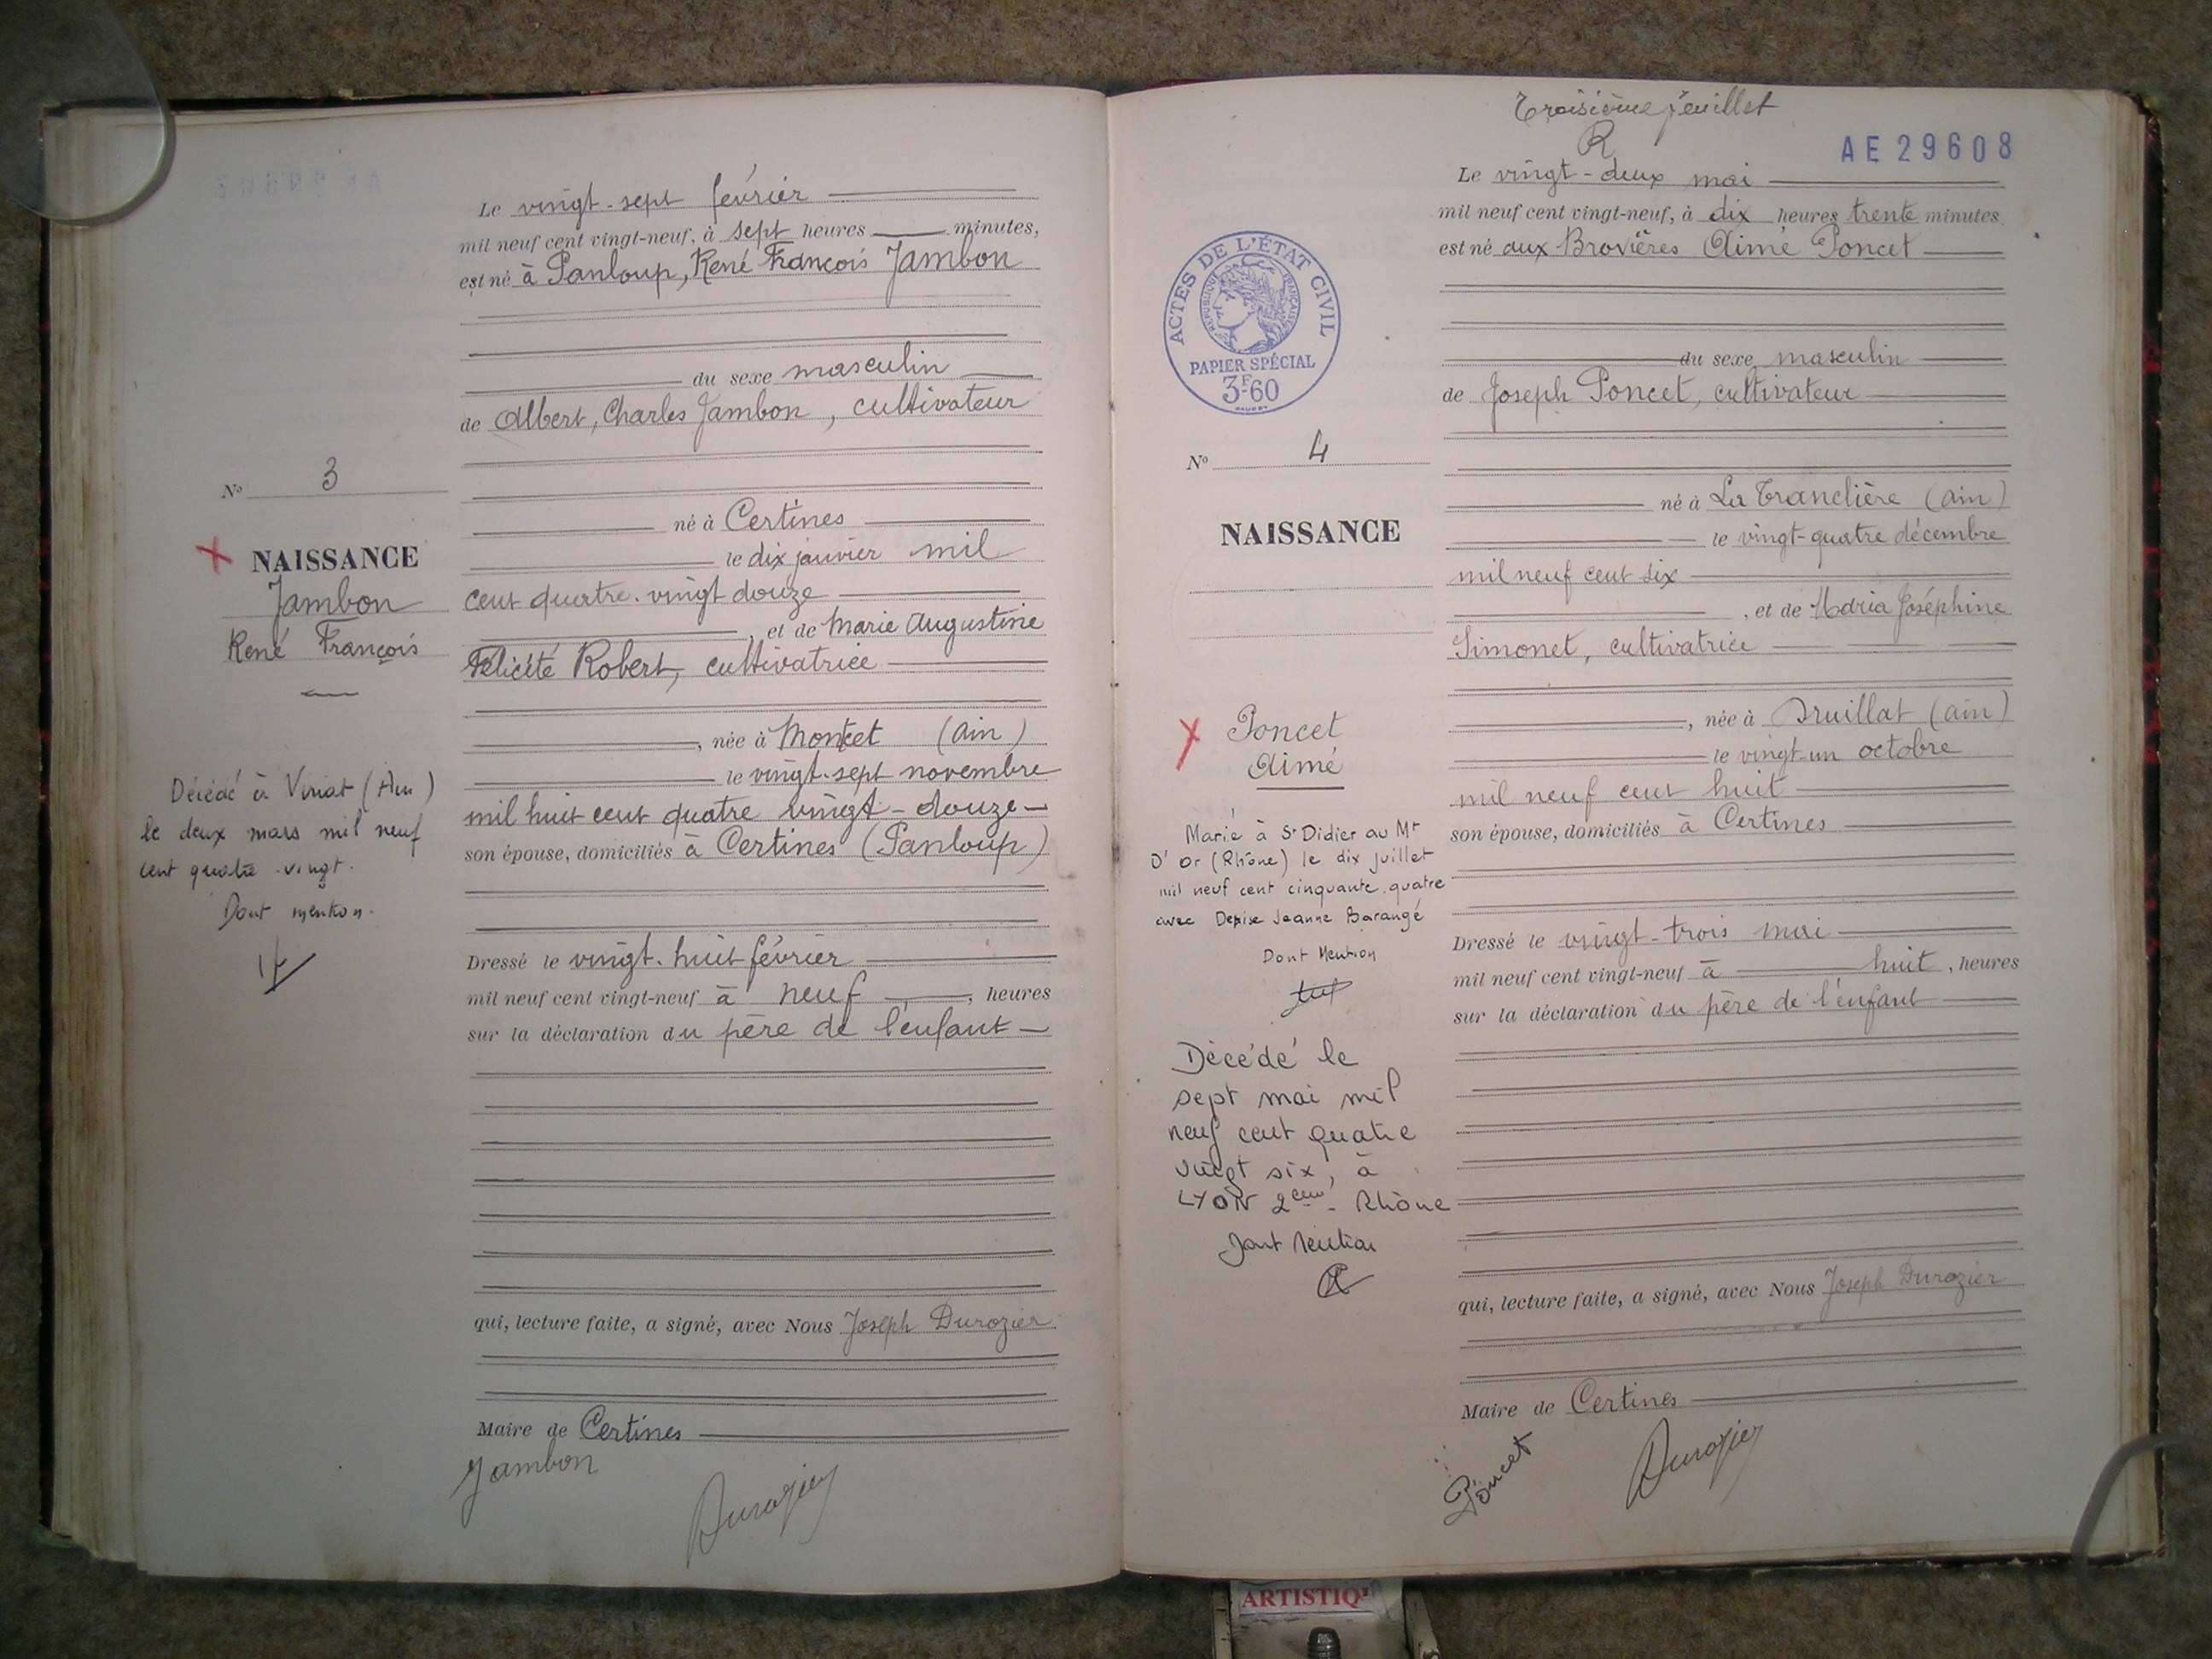 Le vingt-sept février
mil neuf cent vingt-neuf, à sept heures minutes,
est né à Panloup, René François Jambon
du sexe masculin
de Albert, Charles Jambon, cultivateur
né à Certines
le dix janvier mil
cent quatre-vingt douze
, et de Marie Augustine
Félicité Robert, cultivatrice
, née à Moncet (Ain)
le vingt-sept novembre
mil huit cent quatre vingt-douze
son épouse, domiciliés à Certines (Panloup)
Dressé le vingt-huit février
mil neuf cent vingt-neuf à neuf, heures
sur la déclaration du père de l'enfant
qui, lecture faite, a signé, avec Nous Joseph Durozier
Maire de Certines
Jambon
Durozier
No 3
NAISSANCE
Jambon
René François
Décédé à Viriat (Ain)
le deux mars mil neuf
cent quatre-vingt.
Dont mention.
Troisième feuillet
R
AE 29608
Le vingt-deux mai
mil neuf cent vingt-neuf, à dix heures trente minutes
est né aux Brovières Aimé Poncet
du sexe masculin
de Joseph Poncet, cultivateur
né à La Tranclière (Ain)
le vingt-quatre décembre
mil neuf cent six
, et de Maria Joséphine
Simonet, cultivatrice
, née à Druillat (Ain)
le vingt-un octobre
mil neuf cent huit
son épouse, domiciliés à Certines
Dressé le vingt-trois mai
mil neuf cent vingt-neuf à huit, heures
sur la déclaration du père de l'enfant
qui, lecture faite, a signé, avec Nous Joseph Durozier
Maire de Certines
Poncet
Durozier
ACTES DE L'ÉTAT CIVIL
RÉPUBLIQUE FRANÇAISE
PAPIER SPÉCIAL
3F60
No 4
NAISSANCE
Poncet
Aimé
Marié à St Didier au Mt
D'Or (Rhône) le dix juillet
mil neuf cent cinquante-quatre
avec Denise Jeanne Barangé
Dont Mention
Décédé le
sept mai mil
neuf cent quatre
vingt six, à
LYON 2ème - Rhône
Dont Mention
ARTISTIQ